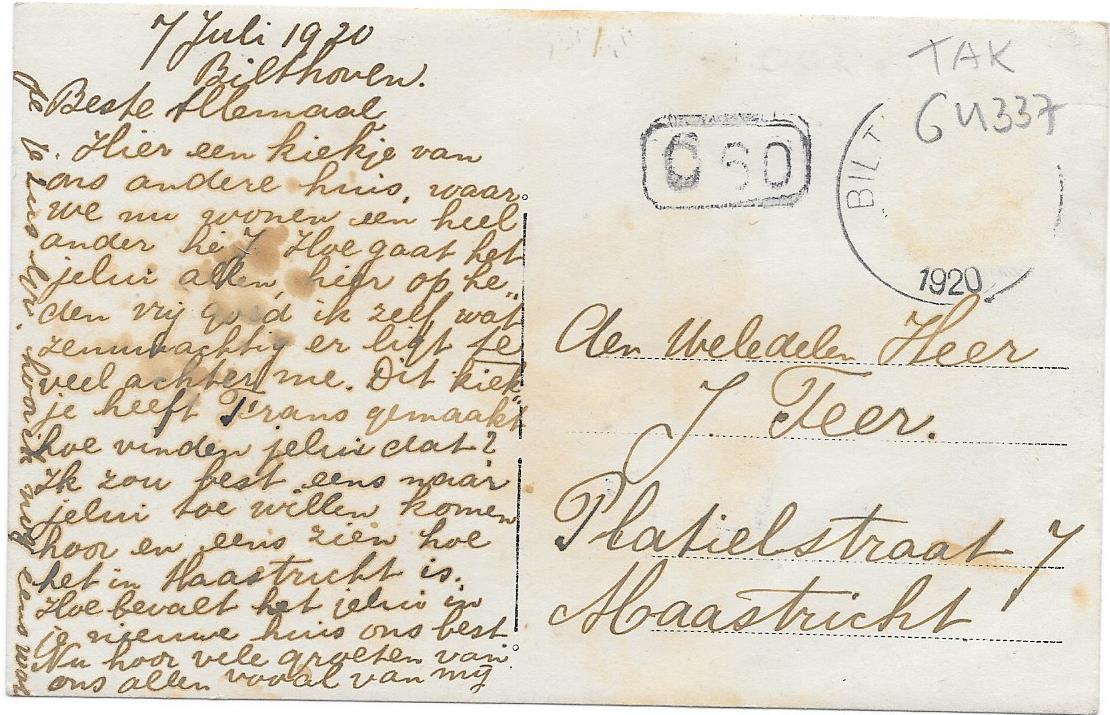 7 Juli 1920
Bilthoven.
Beste Allemaal,
Hier een kiekje van
ons andere huis, waar
we nu wonen een heel
ander hè? Hoe gaat het
jelui allen, hier op he„
den vrij goed ik zelf wat
zenuwachtig er ligt te
veel achter me. Dit kiek„
je heeft Frans gemaakt
hoe vinden jelui dat?
Ik zou best eens naar
jelui toe willen komen
hoor en eens zien hoe
het in Maastricht is.
Hoe bevalt het jelui in
je nieuwe huis ons best
Nu hoor vele groeten van
ons allen vooral van mij
hoor ik nog eens wat
TAK
GU337
BILT
1920
Den Weledelen Heer
J. Feer.
Platielstraat 7
Maastricht